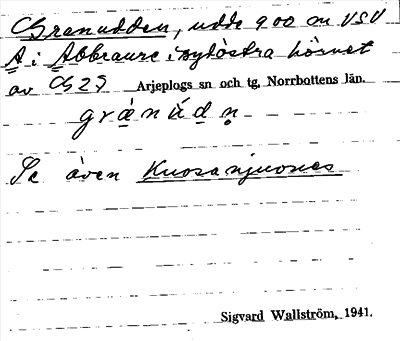 Granudden, udde 900 m VSV
A i Abbraure i sydöstra hörnet
av G25 Arjeplogs sn och tg, Norrbottens län.
gránúdn̥
Se även Kuosanjuones
Sigvard Wallström, 1941.